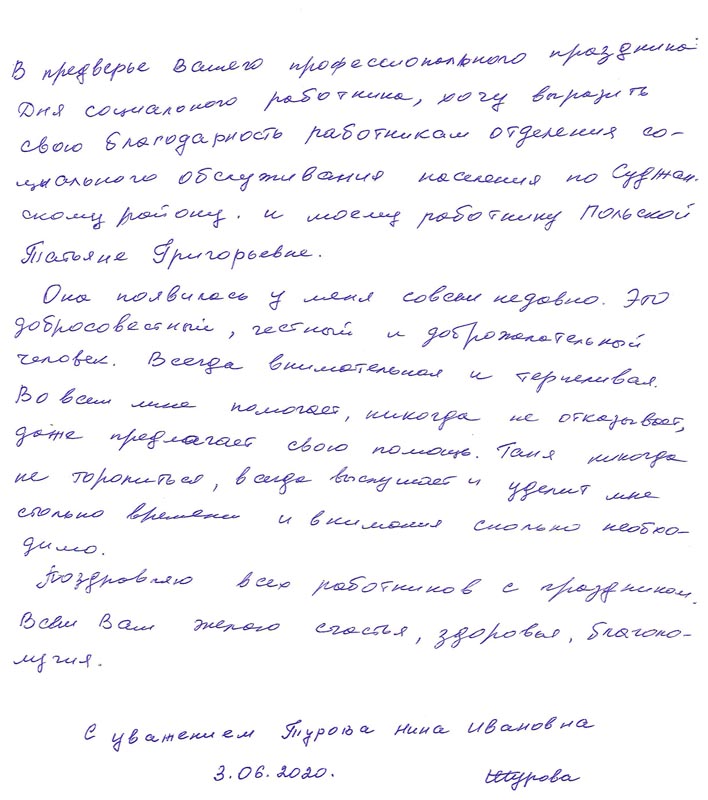 В предверье Вашего профессионального праздника
Дня социалоного работника, хочу выразить
свою благодарность работникам отделения со-
циального обслуживания населения по Суджан.
скому району. и моему работнику Польской
Татьяне Григорьевне.
Она появилась у меня совсем недавно. Это
добросовестный, честный и доброжелательный
человек. Всегда внимательная и терпеливая.
Во всем мне помогает, никогда не отказывает,
даже предлагает свою помощь. Таня никогда
не торопиться, всегда выслушает и уделит мне
столько времени и внимания сколько необхо-
димо.
Поздравляю всех работников с праздником.
Всем Вам желаю счастья, здоровья, благопо-
лучия.
С уважением Турова Нина Ивановна
3.06.2020. Турова